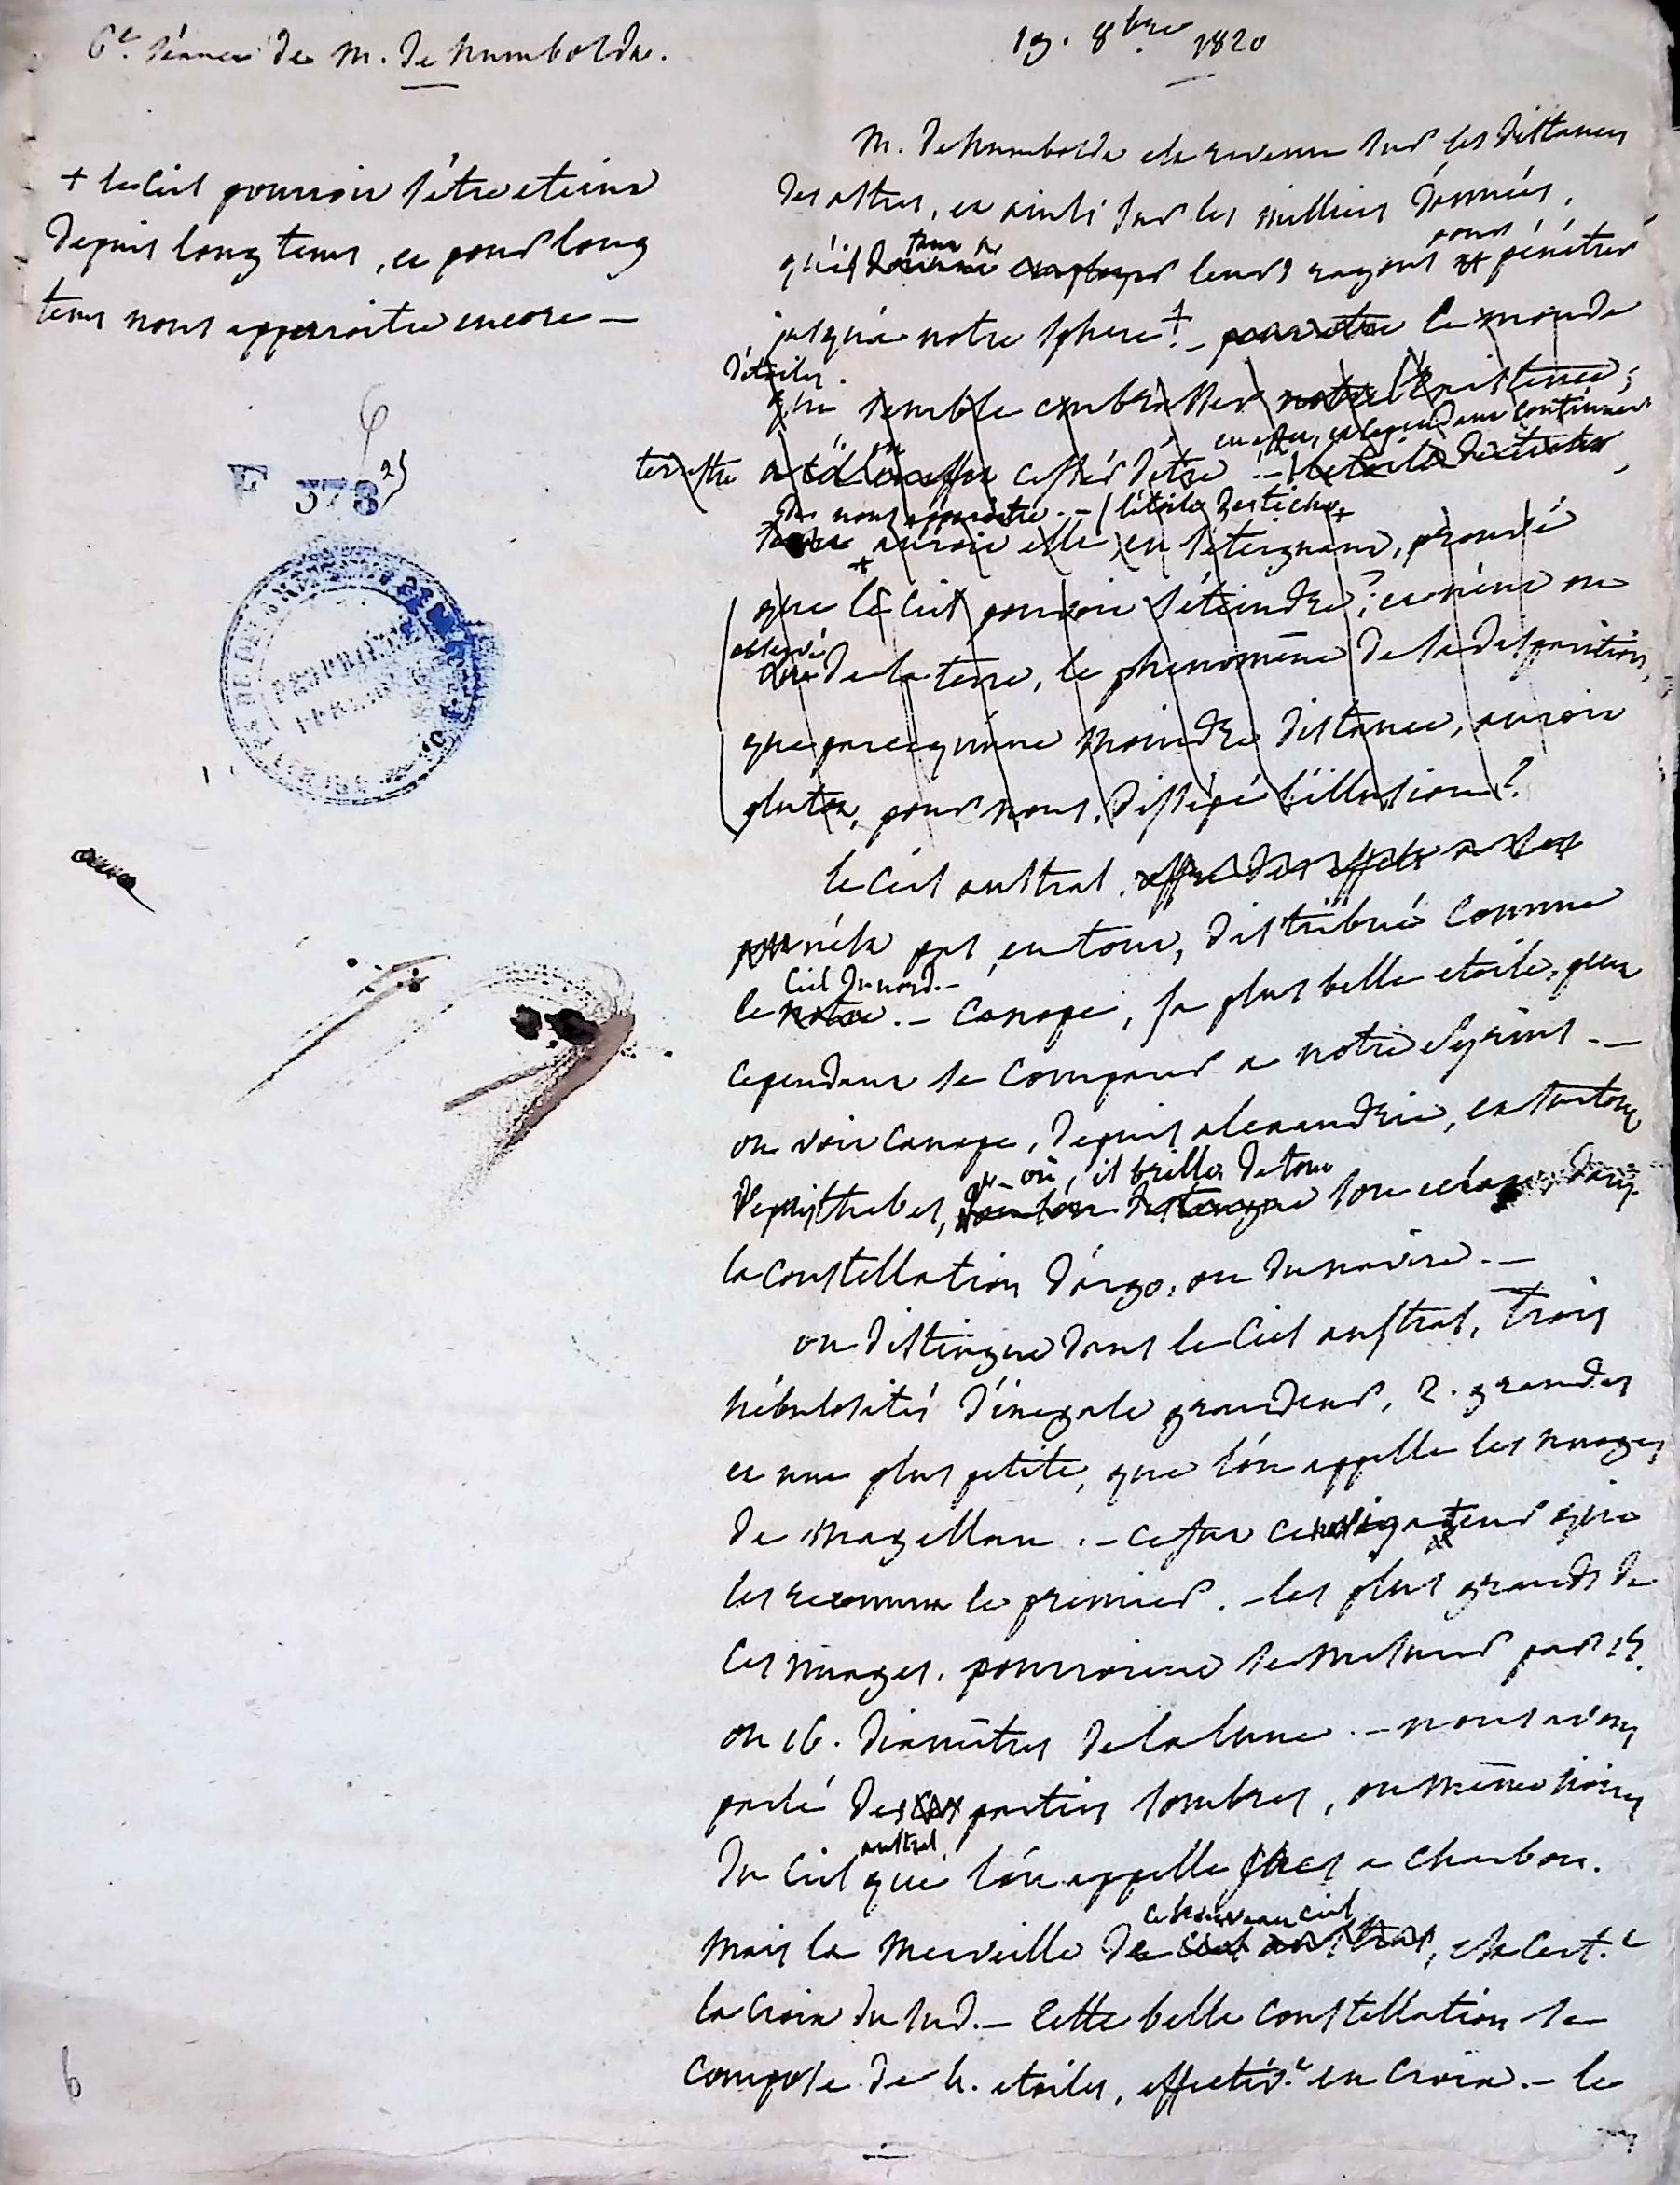 6e. séance de M. de humboldt.
19. 8bre 1820
+ le ciel pourroit s'être eteint
depuis long tems, et pour long
tems nous apparoitre encore —
F 378 25
M. de humboldt est revenu sur les distances
des astres, et ainsi sur les milliers d'années,
qu'il faut a leurs rayons pour pénétrer
jusqu'a notre sphere + — peut etre le monde
d'etoiles
que semble embrasser notre existence,
terrestre a cessé d'être en effet, et cependant continue
de nous apparoitre. — l'étoile de ticho
auroit elle en s'éteignant, prouvé
que le ciel pouvoit s'éteindre ? et n'eut on
observé de la terre, le phenomène de la disparition,
que parcequ'une moindre distance, auroit
plutot, pour nous, dissipé l'illusion ?
le ciel austral, offre des effets
n'est pas, en tout, distribué comme
le ciel du nord. — Canope, sa plus belle etoile, peut
cependant se comparer a notre Syrius —
on voit canope, depuis alexandrie, et surtout
depuis thebes, où, il brille de tout son eclat, dans
la constellation d'argo, ou du navire. —
on distingue dans le ciel austral, trois
nébulosités d'inegale grandeur, 2. grandes
et une plus petite, que l'on appelle les nuages
de magellan. — ce fut ce navigateur qui
les reconnut le premier. — les plus grands de
ces nuages, pourroient se mesurer par 15.
ou 16. diamètres de la lune. — nous avons
parlé des parties sombres, ou même noires
du ciel austral, que l'on appelle sacs a charbon.
mais la merveille de ce nouveau ciel, est cert.e
la croix du sud. — Cette belle constellation se
compose de 4. etoiles, effectiv.e en croix. — le
6